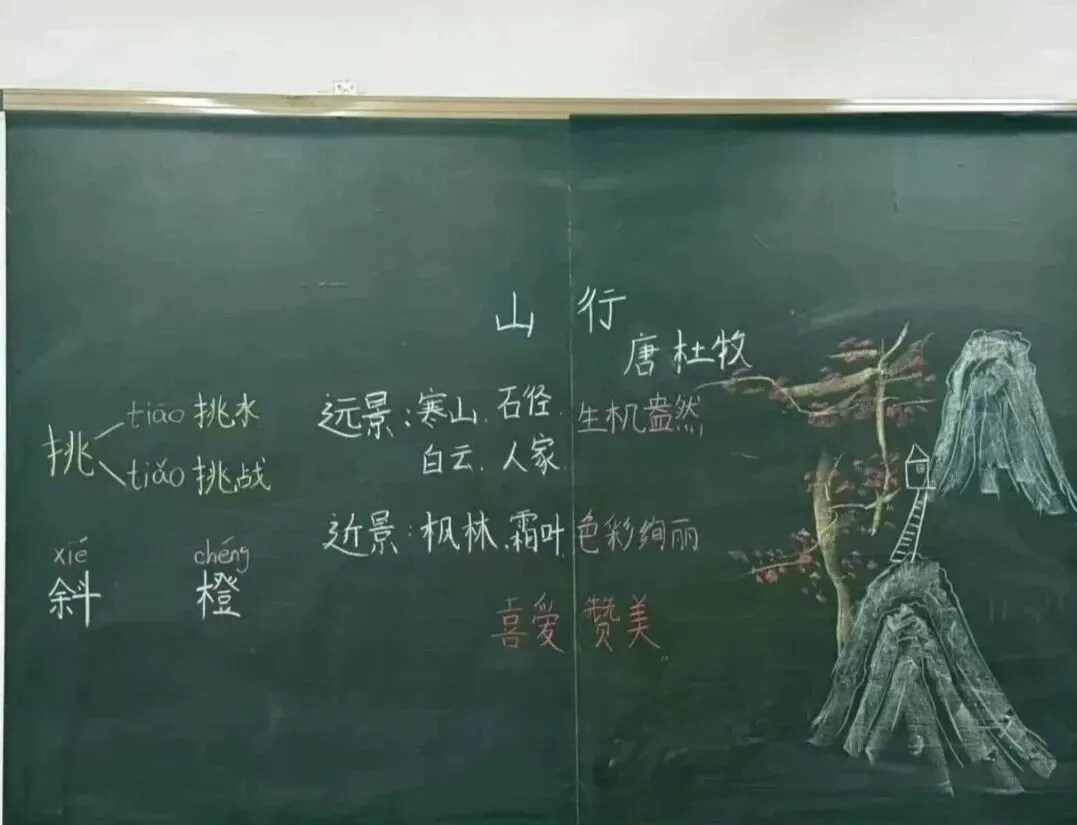 山行
唐 杜牧
挑
tiāo 挑水
tiǎo 挑战
xié chéng
斜 橙
远景:寒山、石径、生机盎然
白云、人家
近景:枫林、霜叶 色彩绚丽
喜爱 赞美